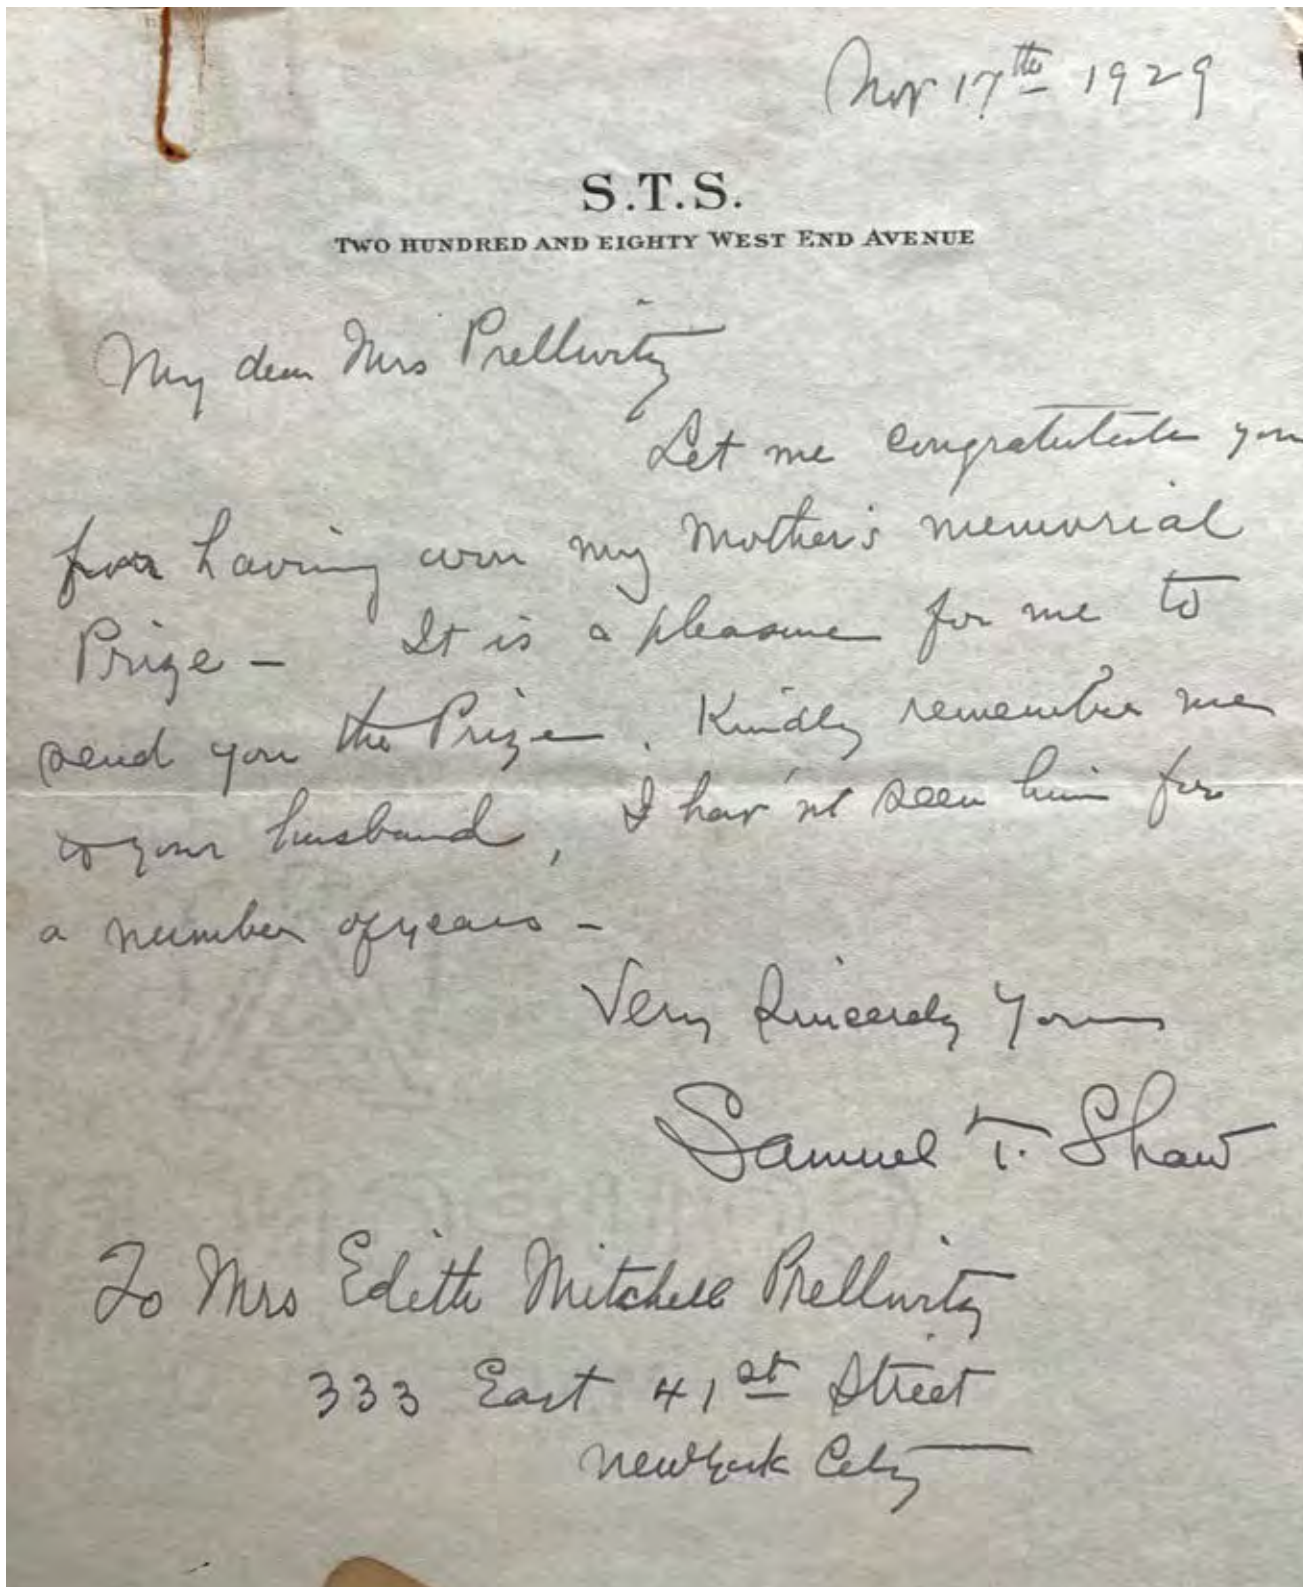 Nov 17th 1929
S.T.S.
TWO HUNDRED AND EIGHTY WEST END AVENUE
My dear Mrs Prellwitz
Let me congratulate you
for having won my Mother's memorial
Prize – It is a pleasure for me to
send you the Prize. Kindly remember me
to your husband, I hav'nt seen him for
a number of years –
Very Sincerely Yours
Samuel T. Shaw
To Mrs Edith Mitchell Prellwitz
333 East 41st Street
New York City